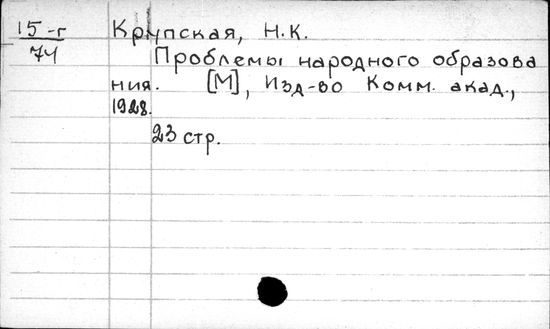 15-г Крупская, Н.К.
74 Проблемы народного образова
ния. [М], Изд-во Комм. акад.,
1928.
23 стр.